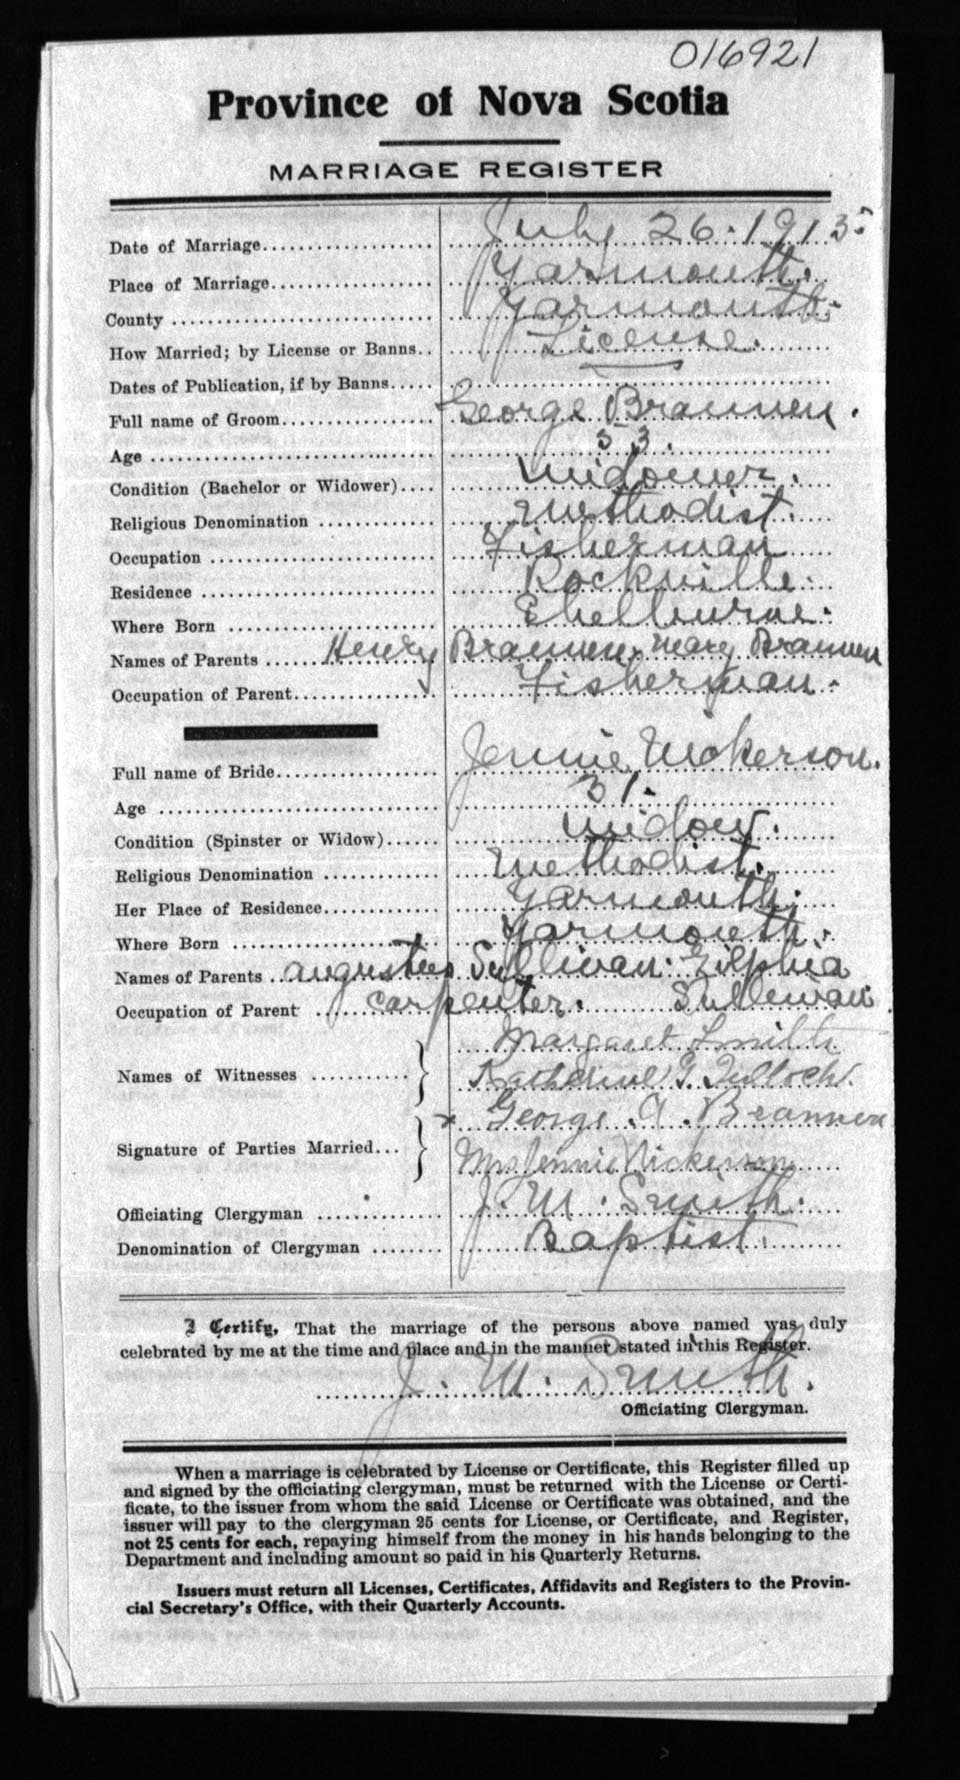 016921
Province of Nova Scotia
MARRIAGE REGISTER
Date of Marriage July 26. 1915
Place of Marriage Yarmouth.
County Yarmouth.
How Married; by License or Banns.. License.
Dates of Publication, if by Banns
Full name of Groom George Brannen.
Age 53.
Condition (Bachelor or Widower) Widower.
Religious Denomination Methodist.
Occupation Fisherman
Residence Rockville.
Where Born Shelburne.
Names of Parents Henry Brannen. Mary Brannen
Occupation of Parent Fisherman.
Full name of Bride Jennie Nickerson.
Age 31.
Condition (Spinster or Widow) Widow.
Religious Denomination Methodist.
Her Place of Residence Yarmouth.
Where Born Yarmouth.
Names of Parents Augustus Sullivan. Zilphia
Occupation of Parent carpenter. Sullivan
Names of Witnesses Margaret Smith
Katherine G. Tulloch.
Signature of Parties Married x George. A. Brannen
Mrs Jennie Nickerson
Officiating Clergyman J. M. Smith.
Denomination of Clergyman Baptist.
I Certify, That the marriage of the persons above named was duly
celebrated by me at the time and place and in the manner stated in this Register.
J. M. Smith.
Officiating Clergyman.
When a marriage is celebrated by License or Certificate, this Register filled up
and signed by the officiating clergyman, must be returned with the License or Certi-
ficate, to the issuer from whom the said License or Certificate was obtained, and the
issuer will pay to the clergyman 25 cents for License, or Certificate, and Register,
not 25 cents for each, repaying himself from the money in his hands belonging to the
Department and including amount so paid in his Quarterly Returns.
Issuers must return all Licenses, Certificates, Affidavits and Registers to the Provin-
cial Secretary's Office, with their Quarterly Accounts.